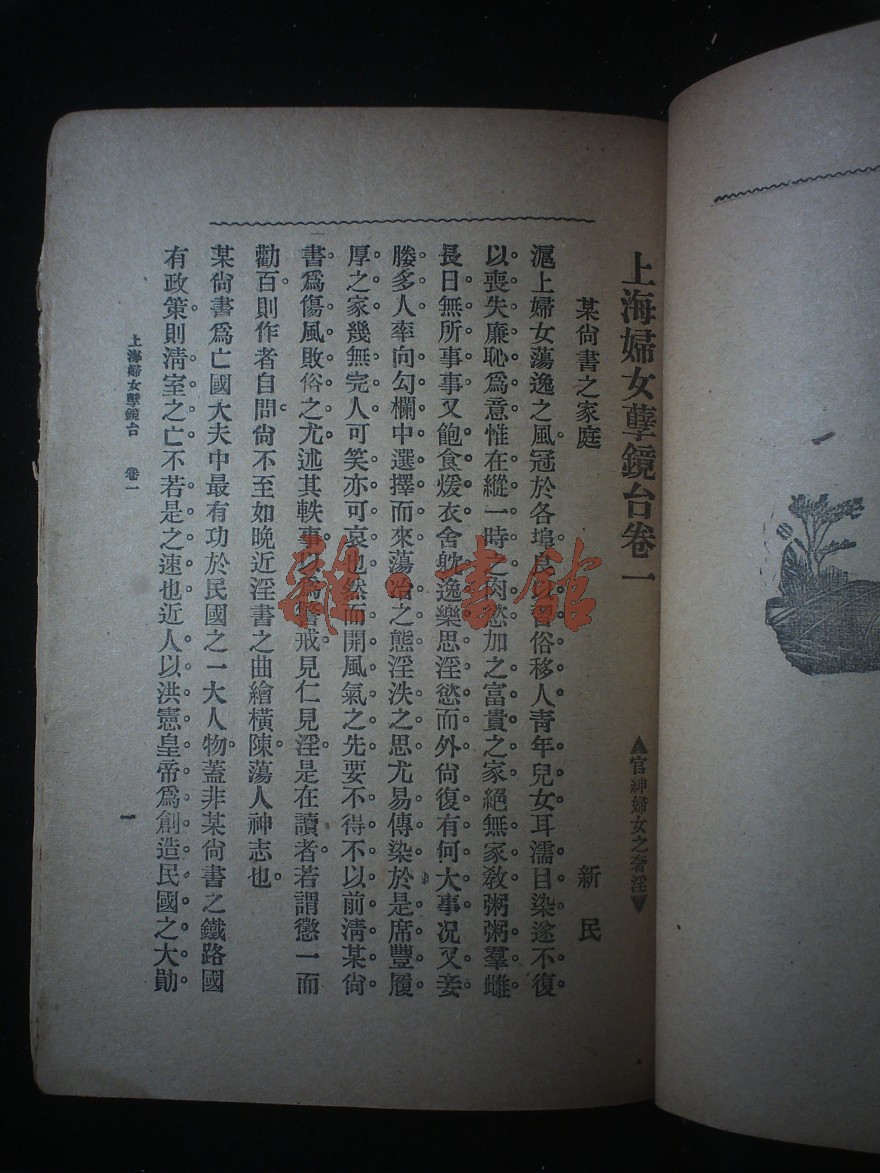 上海婦女孽鏡台卷一
▲官紳婦女之奢淫▼
某尙書之家庭
新民
滬上婦女蕩逸之風冠於各埠良以習俗移人靑年兒女耳濡目染遂不復
以喪失廉恥爲意惟在縱一時之肉慾加之富貴之家絕無家敎粥粥羣雌
長日無所事事又飽食煖衣舍躭逸樂思淫慾而外尙復有何大事况又妾
媵多人率向勾欄中選擇而來蕩冶之態淫泆之思尤易傳染於是席豐履
厚之家幾無完人可笑亦可哀也然而開風氣之先要不得不以前淸某尙
書爲傷風敗俗之尤述其軼事以爲警戒見仁見淫是在讀者若謂懲一而
勸百則作者自問尙不至如晚近淫書之曲繪橫陳蕩人神志也
某尙書爲亡國大夫中最有功於民國之一大人物蓋非某尙書之鐵路國
有政策則淸室之亡不若是之速也近人以洪憲皇帝爲創造民國之大勛
上海婦女孽鏡台 卷一
一
雜·書館